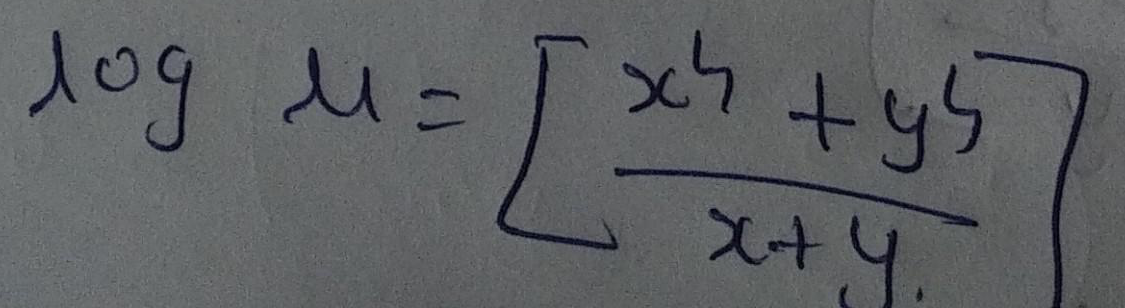 log u = [x⁴ + y⁴
x + y.]